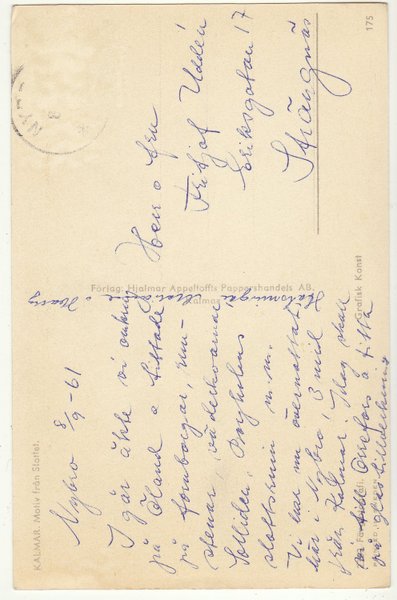 KALMAR. Motiv från Slottet.
Nybro 8/9-61
I går åkte vi omkring
på Öland o tittade
på fornborgar, run-
stenar, väderkvarnar
Solliden, Borgholms
slottsruin m.m.
Vi har nu övernattat
här i Nybro, 3 mil
från Kalmar. Idag skall
vi till Orrefors o titta
på glastillverkning
Hälsningar
Marianne o Harry
Förlag: Hjalmar Appeltoffts Pappershandels AB.
Kalmar
Grafisk Konst
175
Herr o fru
Fritjof Uddén
Eriksgatan 17
Strängnäs